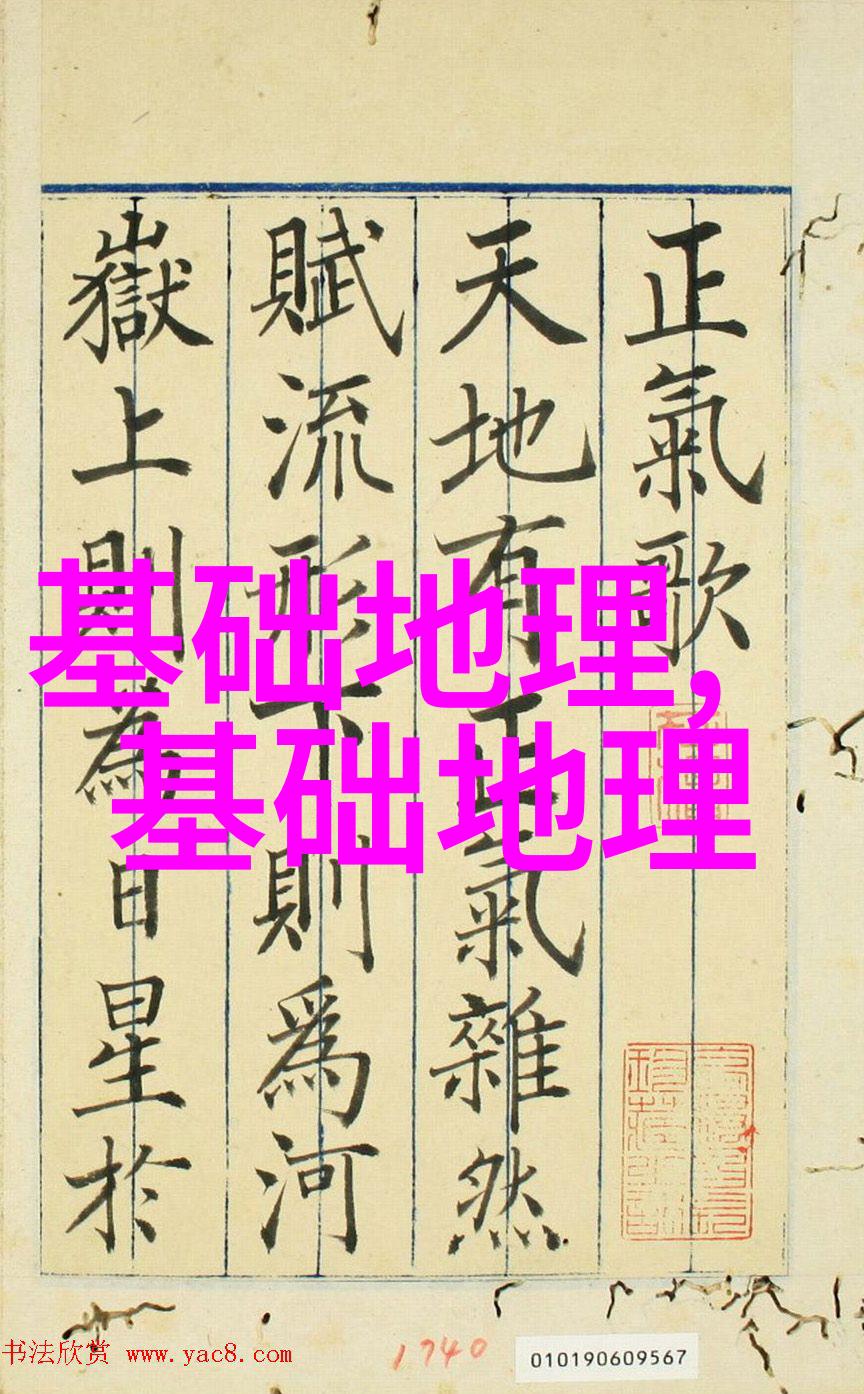 正氣歌
天地有正氣雜然
賦流形下則爲河
嶽上則為日星於
基础地理,
基础地理
书法欣赏 www.yac8.com
1740
010190609567